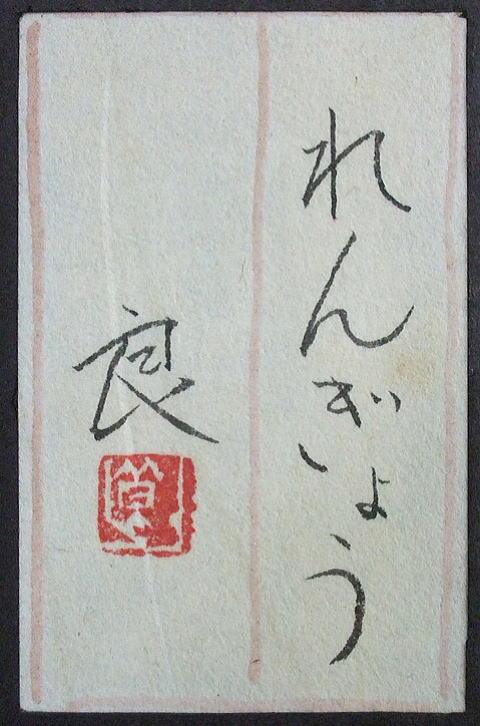 れんぎょう
良